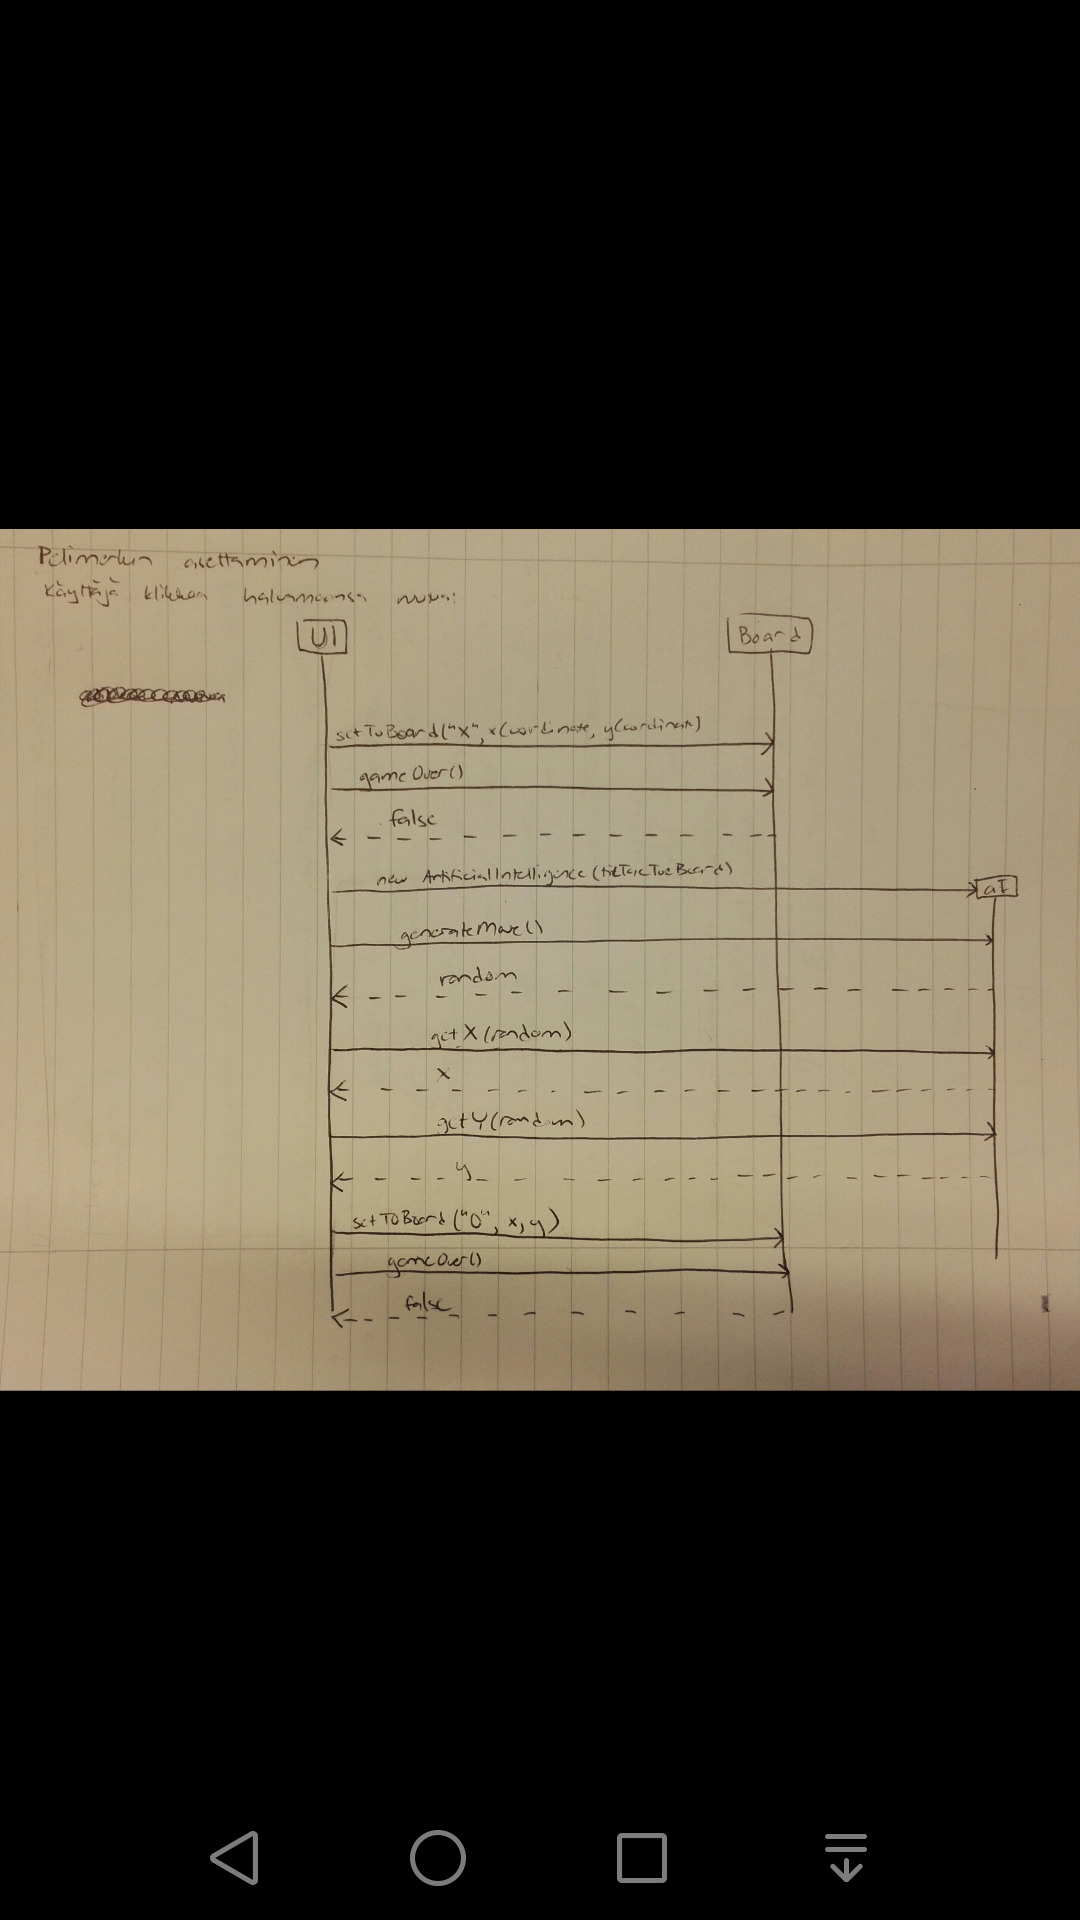 Pelimerkin asettaminen
Käyttäjä klikkaa haluamaansa
UI
Board
setToBoard("X", xCoordinate, yCoordinate)
gameOver()
false
new ArtificialIntelligence(ticTacToeBoard)
aI
generateMove()
random
getX(random)
x
getY(random)
y
setToBoard("O", x, y)
gameOver()
false